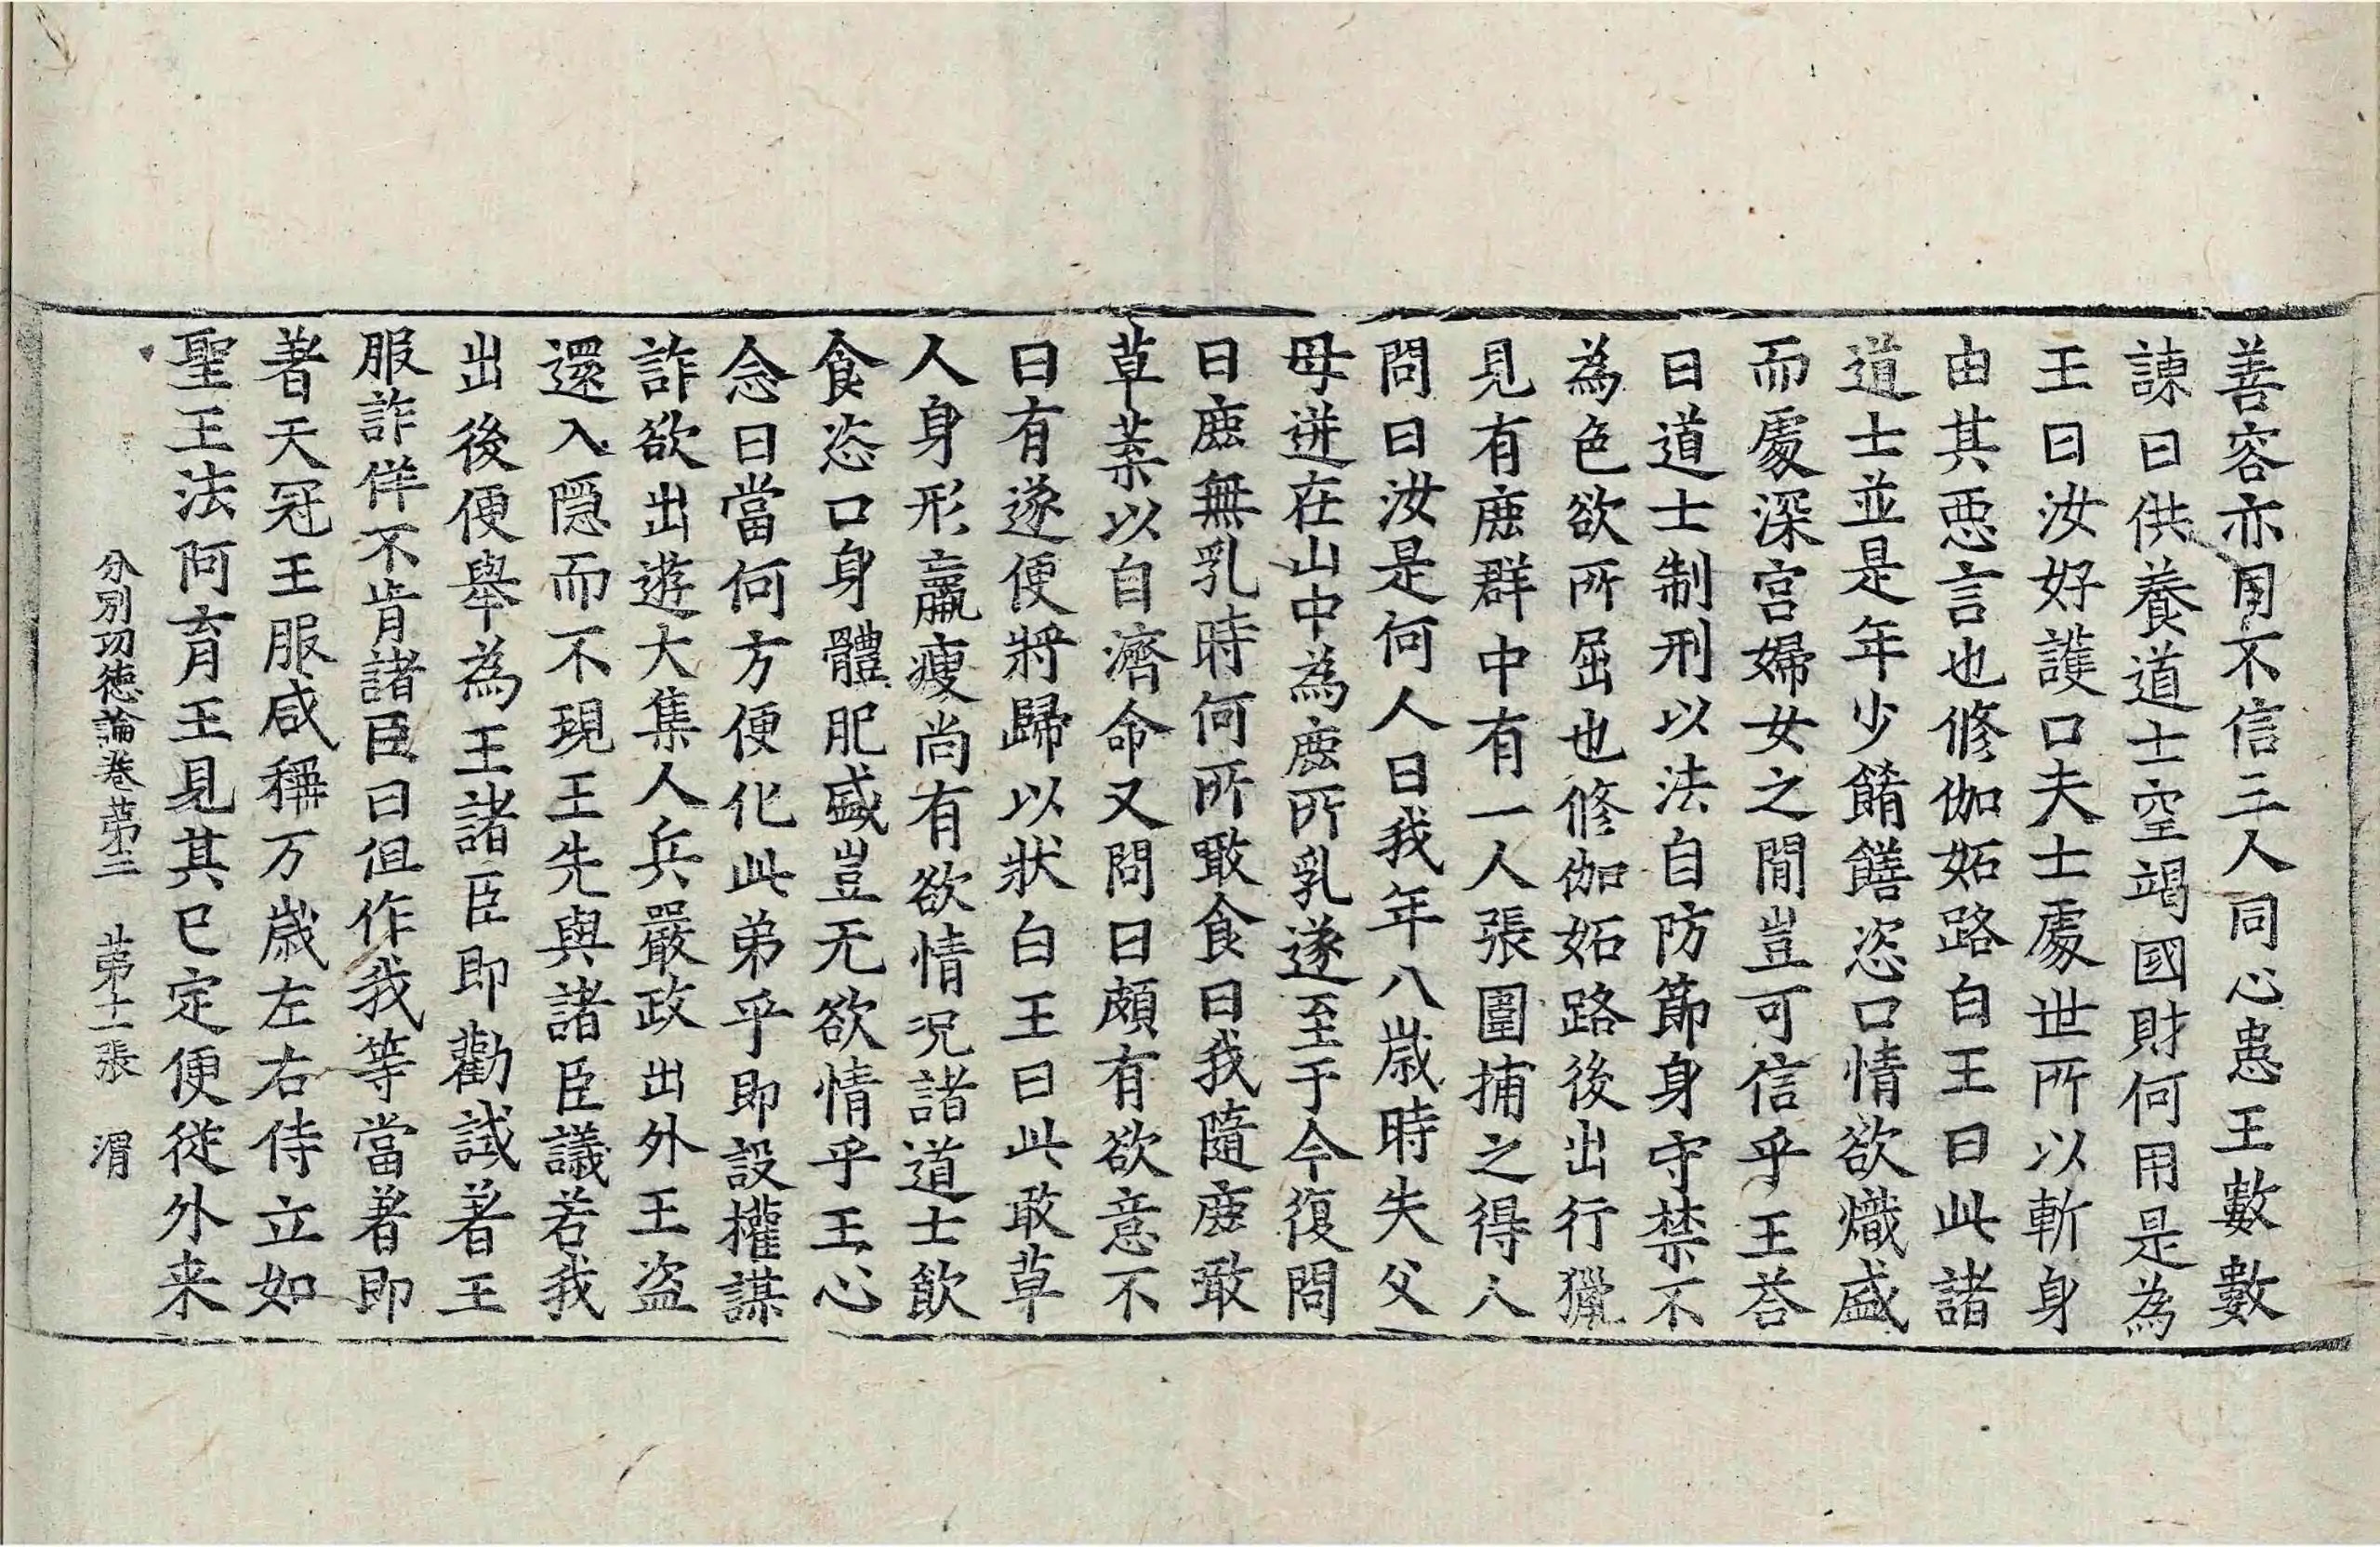 善容亦用不信三人同心患王數數
諫曰供養道士空竭國財何用是為
王曰汝好護口夫士處世所以斬身
由其惡言也修伽妬路白王曰此諸
道士並是年少餚饍恣口情欲熾盛
而處深宮婦女之間豈可信乎王荅
曰道士制刑以法自防節身守禁不
為色欲所屈也修伽妬路後出行獵
見有鹿群中有一人張圍捕之得人
問曰汝是何人曰我年八歲時失父
母迸在山中為鹿所乳遂至于今復問
曰鹿無乳時何所噉食曰我隨鹿噉
草葉以自濟命又問曰頗有欲意不
曰有遂便將歸以狀白王曰此敢草
人身形羸瘦尚有欲情況諸道士飲
食恣口身體肥盛豈无欲情乎王心
念曰當何方便化此弟乎即設權謀
詐欲出遊大集人兵嚴政出外王盜
還入隱而不現王先與諸臣議若我
出後便舉為王諸臣即勸試著王
服詐佯不肯諸臣曰但作我等當著即
著天冠王服咸稱万歲左右侍立如
聖王法阿育王見其已定便從外来
分別功德論卷苐三 苐十一張 渭